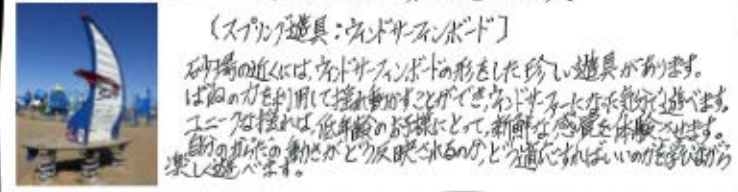 〔スプリング遊具：ウィンドサーフィンボード〕
砂場の近くには、ウィンドサーフィンボードの形をした珍しい遊具があります。
ばねの力を利用して揺れ動かすことができ、ウィンドサーファーになった気分で遊べます。
ユニークな揺れは、低年齢のお子様にとって、新鮮な感覚を体験させます。
自分のからだの動きがどう反映されるのか、どう適応すればいいのかを学びながら
楽しく遊べます。